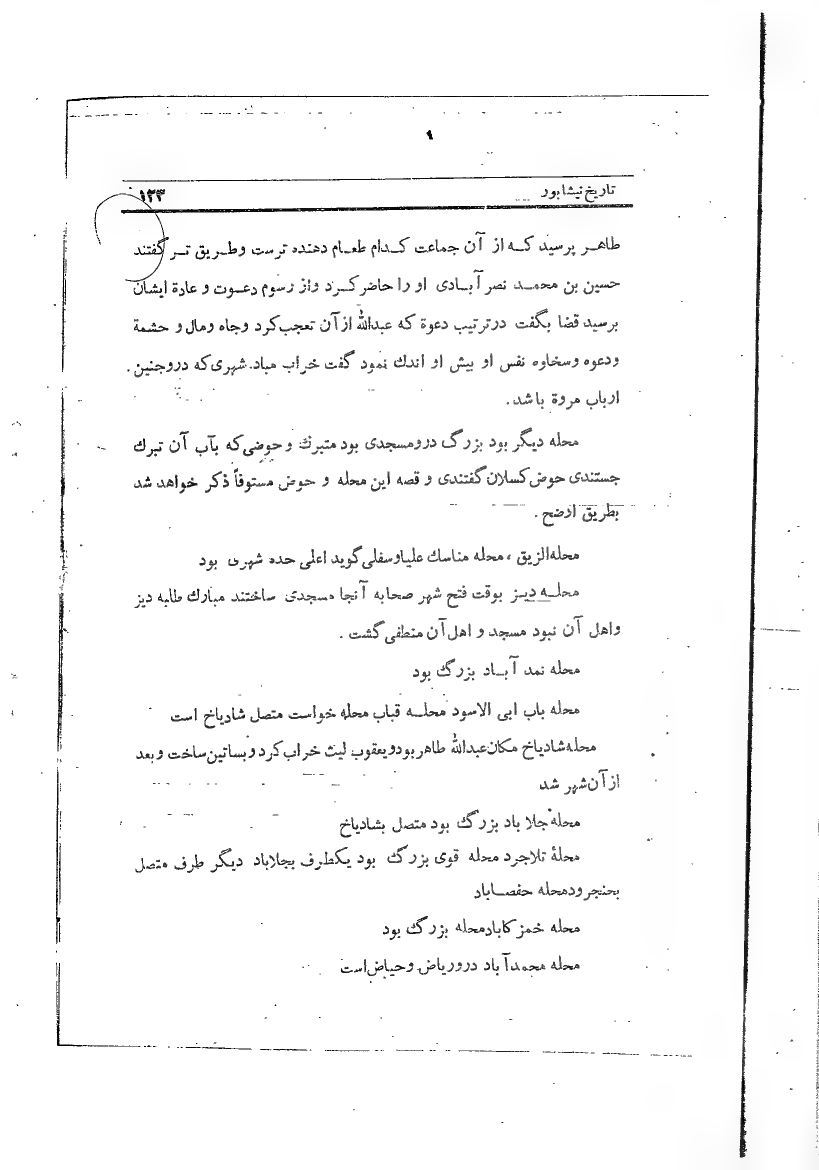 ۹
تاریخ نیشابور ۱۲۳
طاهر پرسید که از آن جماعت کدام طعام دهنده ترست و طریق تر گفتند
حسین بن محمد نصر آبادی او را حاضر کرد و از رسوم دعوت و عادة ایشان
برسید قضا بگفت در ترتیب دعوة که عبدالله از آن تعجب کرد و جاه و مال و حشمة
ودعوه وسخاوه نفس او بیش او اندك نمود گفت خراب مباد شهری که دروجنین
ارباب مروة باشد.
محله دیگر بود بزرگ درومسجدی بود متبرك و حوضی که بآب آن تبرك
جستندی حوض کسلان گفتندی و قصه این محله و حوض مستوفاً ذکر خواهد شد
بطریق ارضح.
محله الزیق ، محله مناسك علیا و سفلی گوید اعلی حده شهری بود
محله دیز بوقت فتح شهر صحابه آنجا مسجدی ساختند مبارك طلبه دیز
واهل آن نبود مسجد و اهل آن منطفی گشت .
محله نمد آباد بزرگ بود
محله باب ابی الاسود محله قباب محله خواست متصل شادیاخ است
محله شادیاخ مکان عبدالله طاهر بود و یعقوب لیث خراب کرد و بساتین ساخت و بعد
از آن شهر شد
محله جلاباد بزرگ بود متصل بشادیاخ
محلۀ تلاجرد محله قوی بزرگ بود یکطرف بجلاباد دیگر طرف متصل
بحنجرود محله حفصاباد
محله خمزکاباد محله بزرگ بود
محله محمدآباد درو ریاض و حیاض است